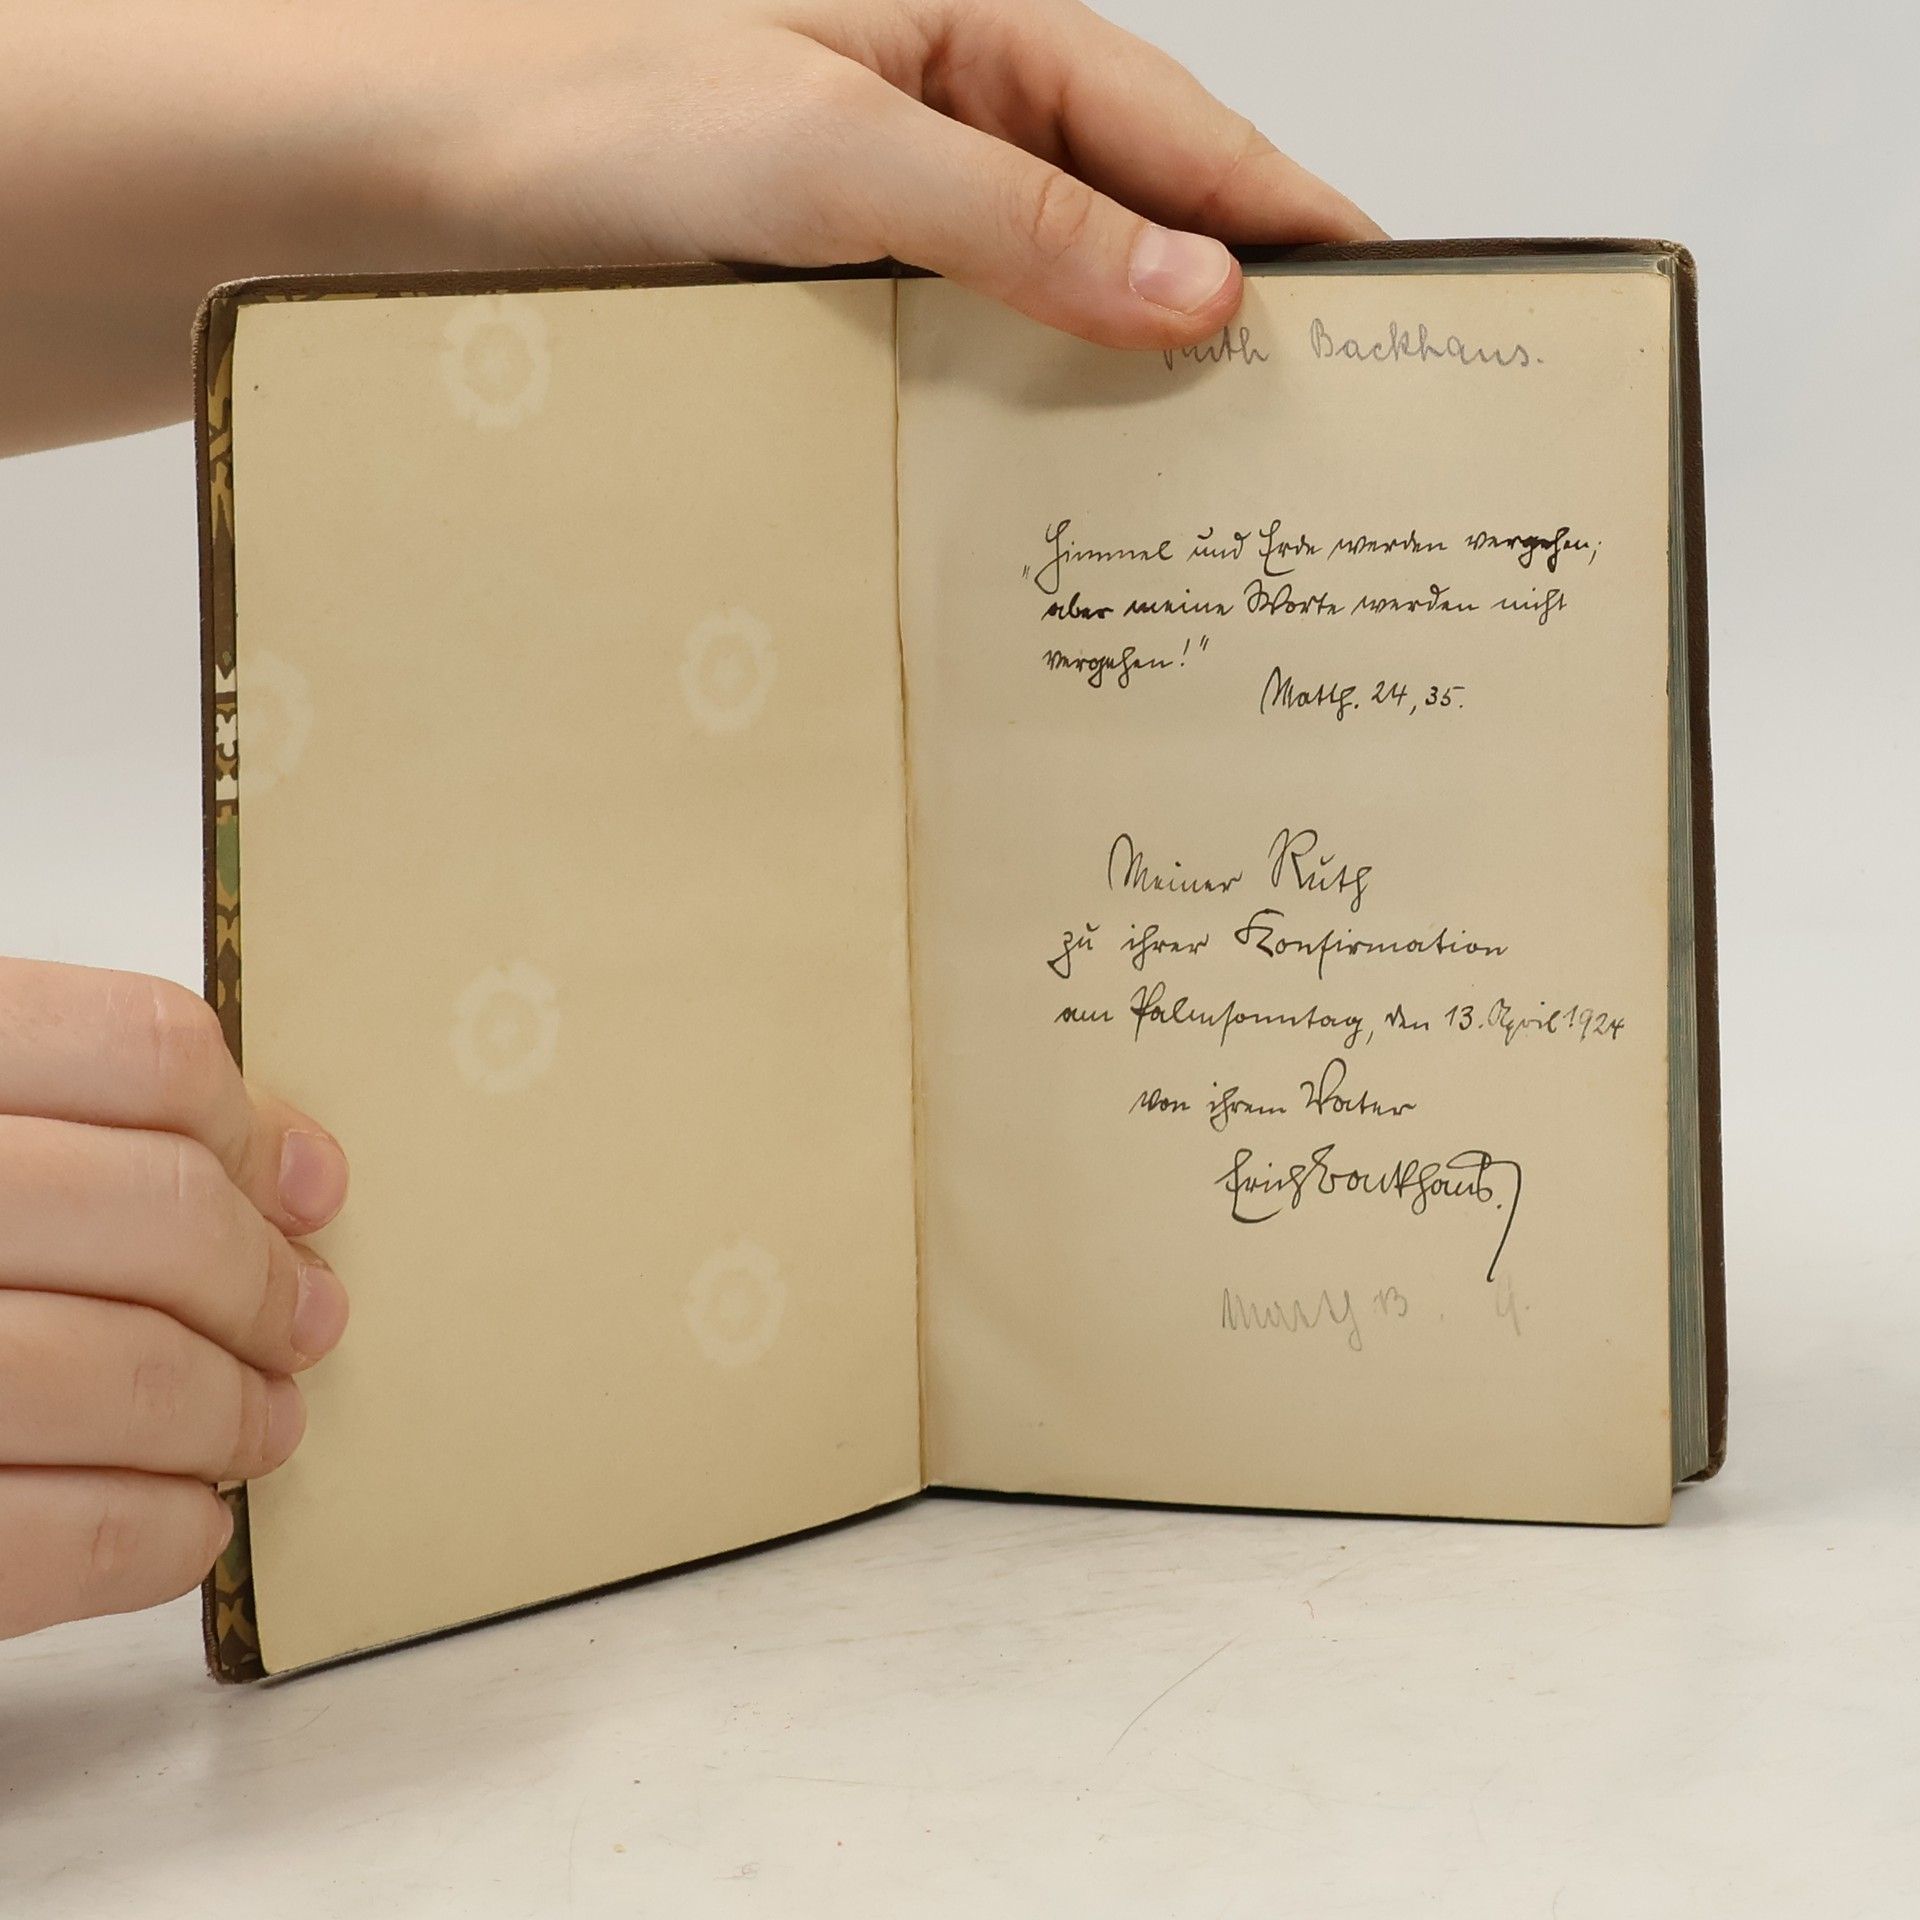 Ruth Backhaus.
„Himmel und Erde werden vergehen;
aber meine Worte werden nicht
vergehen!“
Matth. 24, 35.
Meiner Ruth
zu ihrer Konfirmation
am Palmsonntag, den 13. April 1924
von ihrem Vater
Erich Backhaus.